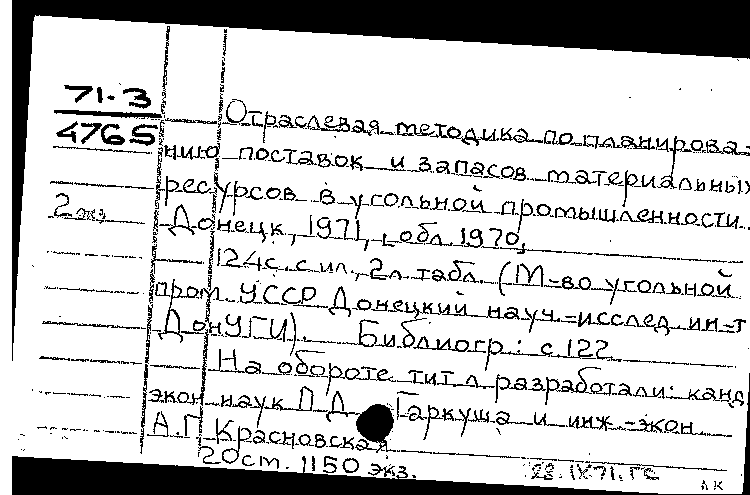 71-3
4765
Отраслевая методика по планирова-
нию поставок и запасов материальных
ресурсов в угольной промышленности.
2 экз
Донецк, 1971, обл. 1970,
124с. с ил., 2л табл. (М-во угольной
пром. УССР Донецкий науч.-исслед. ин-т
ДонУГИ). Библиогр.: с. 122
На обороте тит л. разработали: канд
экон наук П Д Гаркуша и инж.-экон.
А.П. Красновская
20ст. 1150 экз.
23.IX71. ГС
ЛК